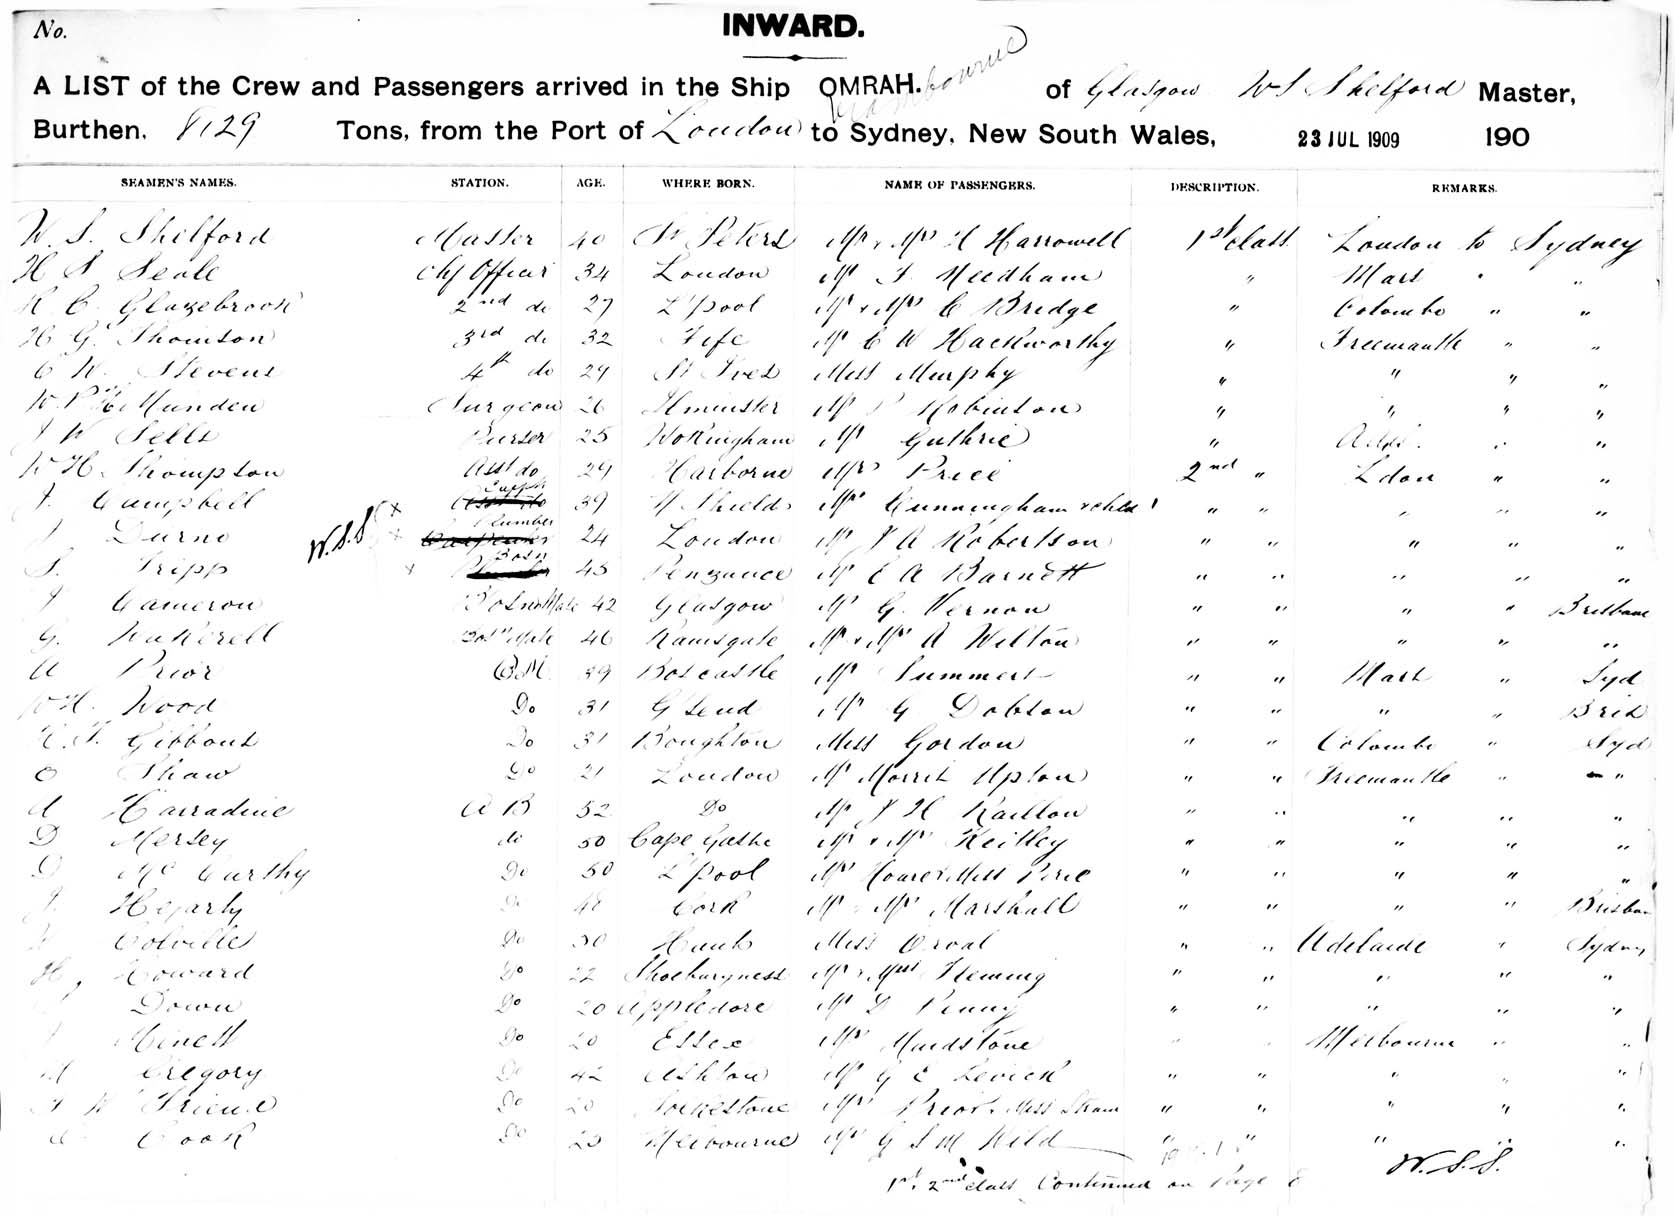 No.
INWARD.
A LIST of the Crew and Passengers arrived in the Ship OMRAH. of Glasgow W S Shelford Master,
Burthen, 8129 Tons, from the Port of London to Sydney, New South Wales, 23 JUL 1909 190
SEAMEN'S NAMES. STATION. AGE. WHERE BORN. NAME OF PASSENGERS. DESCRIPTION. REMARKS.
W. S. Shelford Master 40 St Peters Mr & Mrs H Harrowell 1st class London to Sydney
H S Seale Chf Officer 34 London Mr Needham " Mars " "
R. C. Glazebrook 2nd do 27 L'pool Mr & Mrs C Bridge " Colombo " "
H G. Thomson 3rd do 32 Fife Mr C W Hackworthy " Freemantle " "
C W. Stevens 4th do 29 St Ives Miss Murphy " " " "
Munden Surgeon 26 Ilminster Mr Robinson " " " "
J W Sells Purser 25 Wokingham Mr Guthrie " " "
W H. Thompson Asst do 29 Harborne Mrs Price 2nd " Ldon " "
J. Campbell Carptr 39 N Shields Mrs Cunningham & child " " " " "
J Durno Plumber 24 London Mr J A Robertson " " " " "
W.S.S
S. Tripp Bosn 45 Penzance Mr E A Barnett " " " " "
J Cameron Bosns Mate 42 Glasgow Mr G. Vernon " " " " Brisbane
G. Wakerell Bosns Mate 46 Ramsgate Mr & Mrs A Wilton " " " " "
A Prior Q.M. 39 Boscastle Mr Summers " " Mars " Syd
W H. Wood Do 31 G'send Mr G Dobson " " " " Bris
Gibbons Do 31 Boughton Miss Gordon " " Colombo " Syd
O Shaw Do 21 London Mr Morris Upton " " Freemantle " "
A Harradine A B 52 Do Mr J H Railton " " " " "
D Mersey do 50 Cape Mr & Mrs Keitley " " " " "
D McCarthy Do 50 L'pool Mrs Hoare & Miss " " " " "
J. Hegarty Do 48 Cork Mr & Mrs Marshall " " " " Brisban
Colville Do 30 Hants Miss Orval " " Adelaide " Sydney
H. Howard Do 22 Shoeburyness Mr & Miss Fleming " " " " "
Down Do 20 Appledore Mr D Penny " " " " "
Minett Do 20 Essex Mrs Maidstone " " Melbourne " "
Gregory Do 42 Ashton Mr G E Levick " " " " "
W Friend Do 20 Folkestone Mrs Prior & Miss " " " " "
Cook Do 25 Melbourne Mr G S M Wild " " " " "
1st & 2nd class Continued on Page W.S.S.